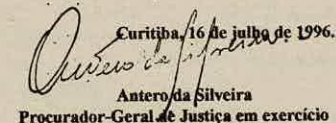 Curitiba, 16 de julho de 1996.
Antero da Silveira
Procurador-Geral de Justiça em exercício